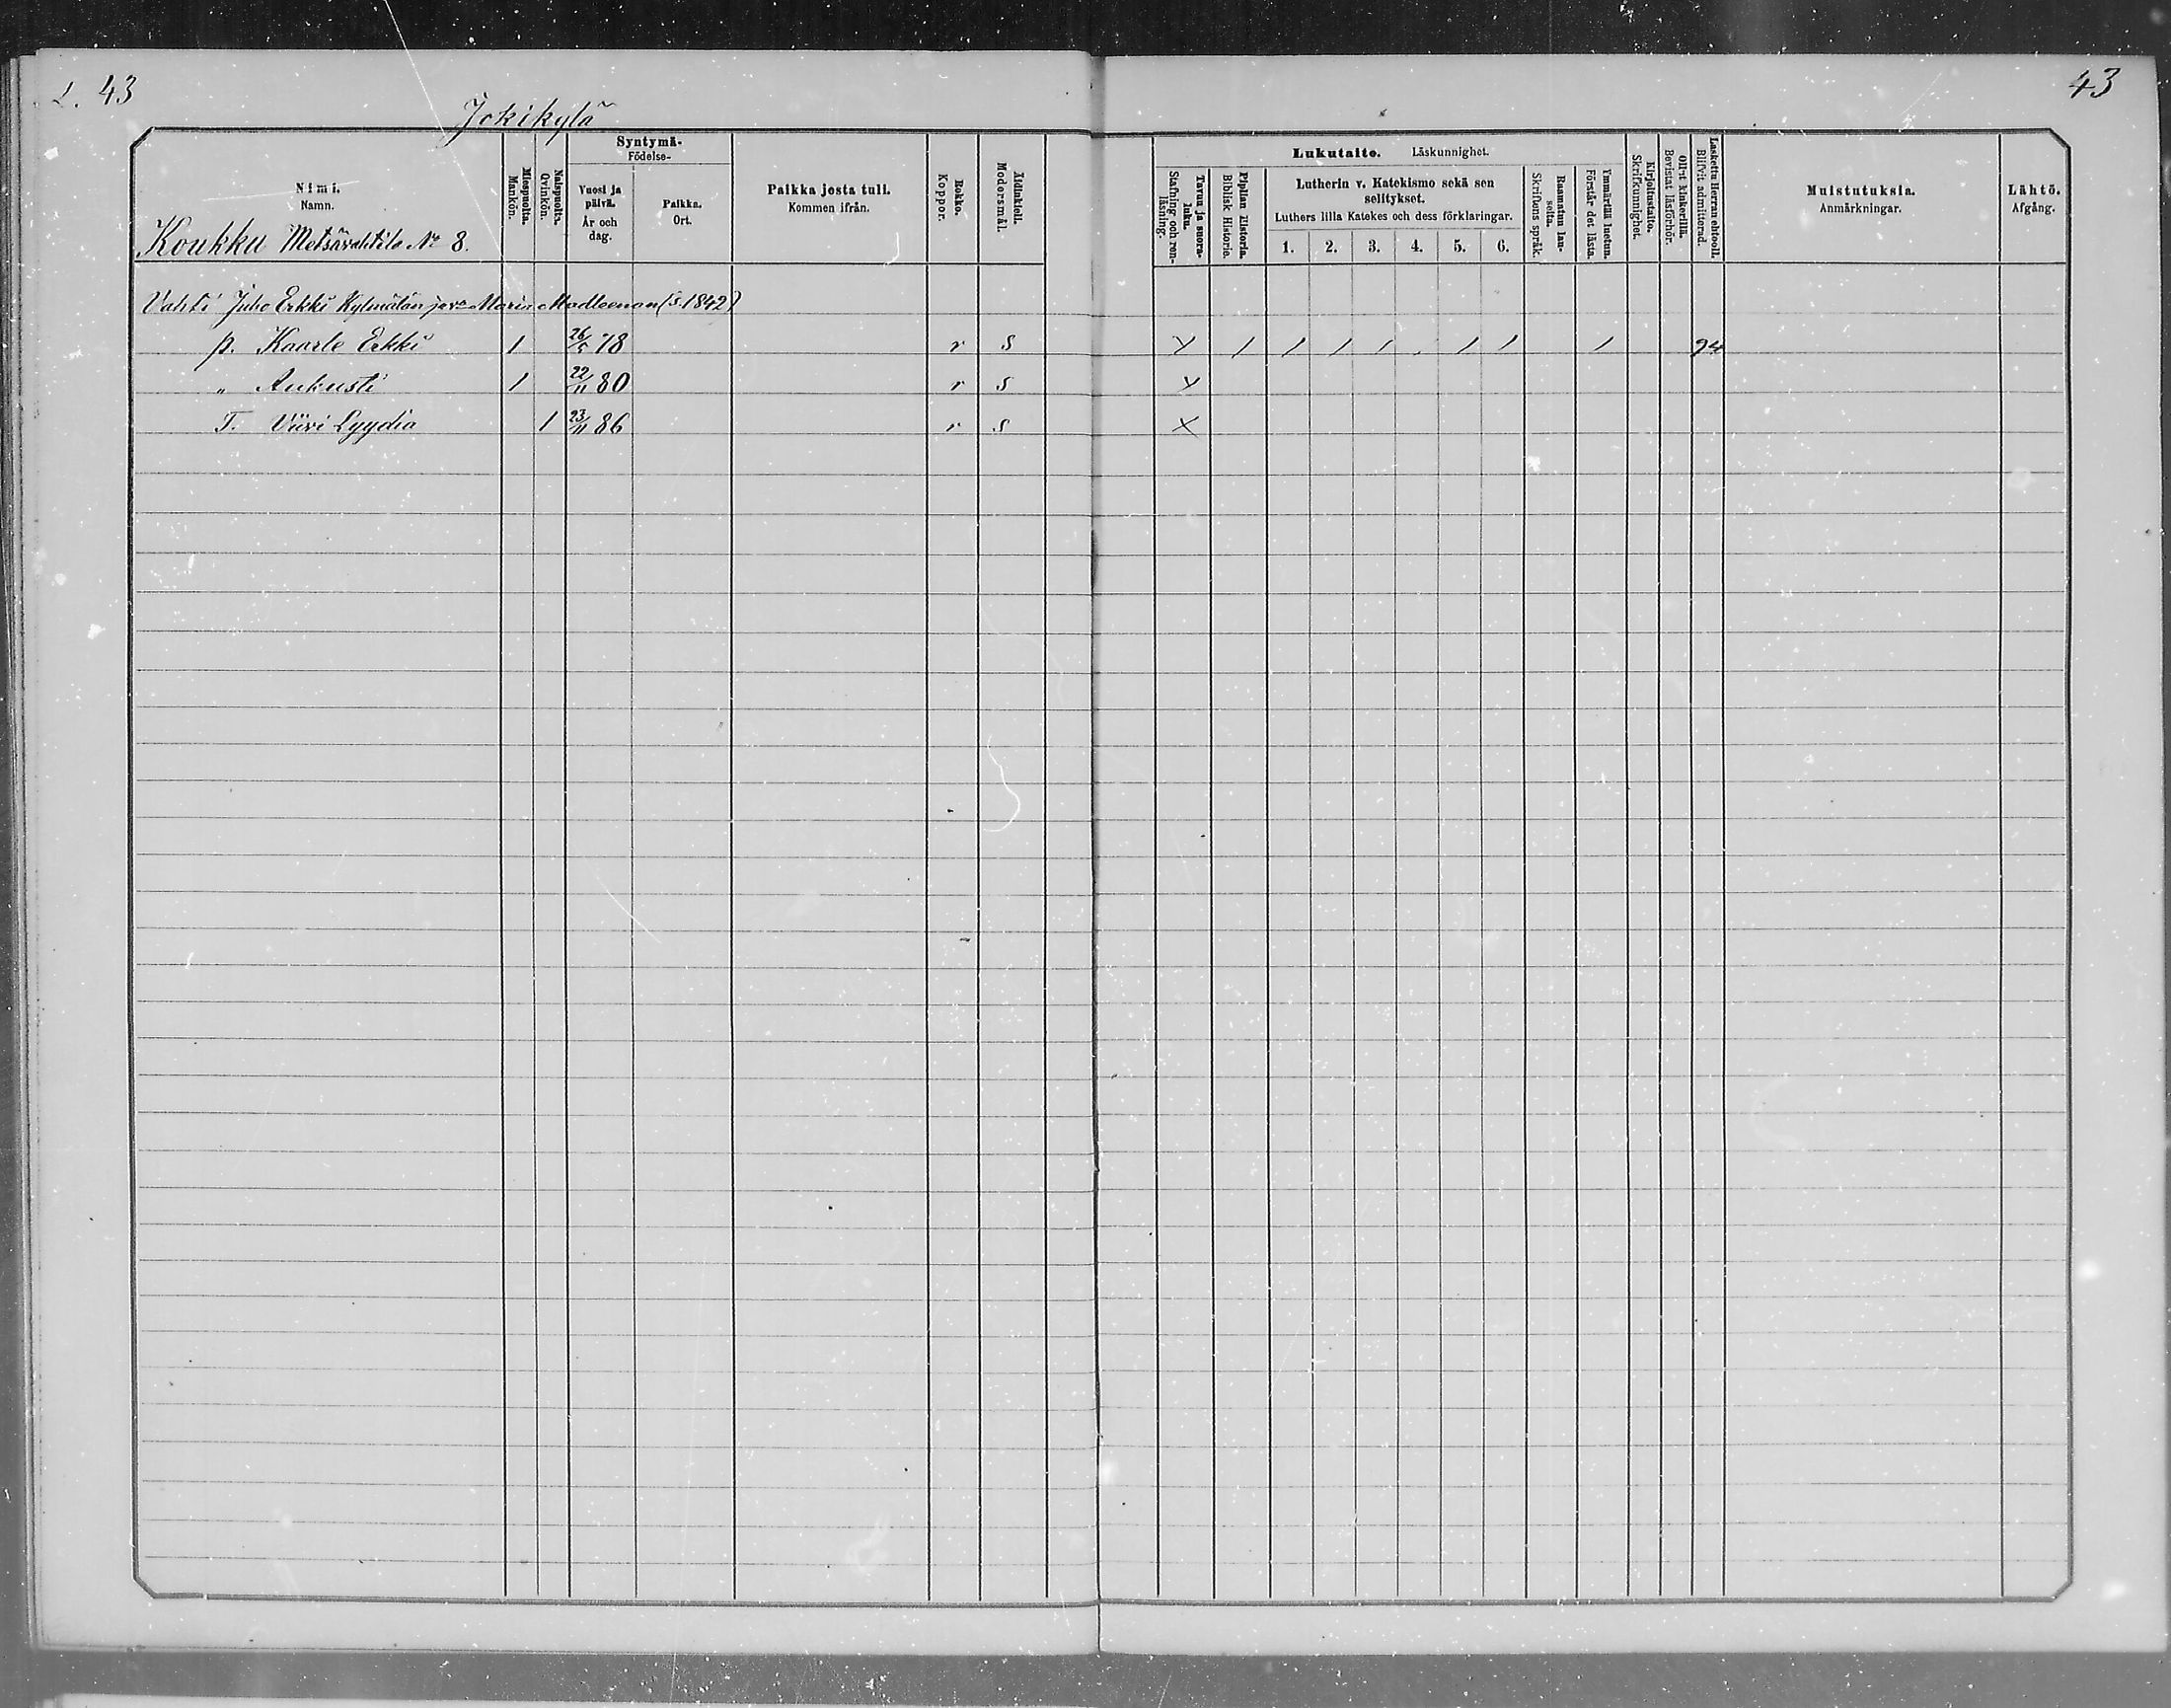 L. 43
43
Jokikylä
Nimi.
Namn.
Koukku Metsävahtila No 8.
Miespuolta.
Mankön.
Naispuolta.
Qvinkön.
Syntymä-
Födelse-
Vuosi ja
päivä.
År och
dag.
Paikka.
Ort.
Paikka josta tuli.
Kommen ifrån.
Rokko.
Koppor.
Äidinkieli.
Modersmål.
Lukutaito. Läskunnighet.
Tavuu ja suora-
luku.
Stafning och ren-
läsning.
Piplian historia.
Biblisk Historie.
Lutherin v. Katekismo sekä sen
selitykset.
Luthers lilla Katekes och dess förklaringar.
1. 2. 3. 4. 5. 6.
Raamatun lau-
seita.
Skriftens språk.
Ymmärtää luetun.
Förstår det lästa.
Kirjoitustaito.
Skrifkunnighet.
Ollut kinkerillä.
Bevistat läsförhör.
Laskettu Herran ehtooll.
Blifvit admitterad.
Muistutuksia.
Anmärkningar.
Lähtö.
Afgång.
Vahti Juho Erkki Kylmälän ja v:o Maria Madleenan (s. 1842)
p. Kaarle Erkki 1 26/5 78 r S X / / / / . / / / 94
" Aukusti 1 22/11 80 r S X
T. Viivi Lyydia 1 23/11 86 r S X